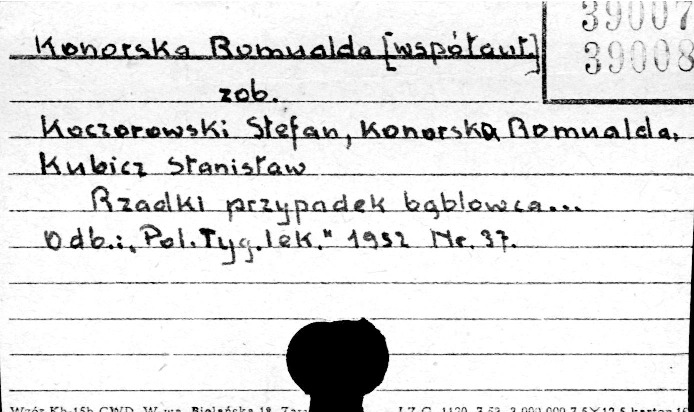 39007
39008
Konorska Romualda [współaut]
zob.
Koczorowski Stefan, Konorska Romualda,
Kubicz Stanisław
Rzadki przypadek bąblowca...
Odb.: „Pol. Tyg. lek." 1952 Nr. 37.
Wzór Kh-15b CWD, W-wa, Bielańska 18,